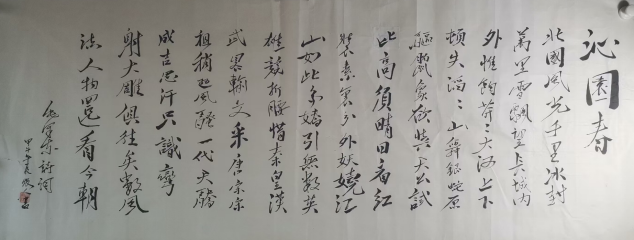 沁園春
北國風光千里冰封
萬里雪飄望長城內
外惟餘莽〻大河上下
頓失滔〻山舞銀蛇原
驅蠟象欲與天公試
比高須晴日看紅
裝素裹分外妖嬈江
山如此多嬌引無數英
雄競折腰惜秦皇漢
武畧輸文采唐宗宋
祖稍遜風騷一代天驕
成吉思汗只識彎
射大雕俱往矣數風
流人物還看今朝
毛澤東詩詞
甲午年夏